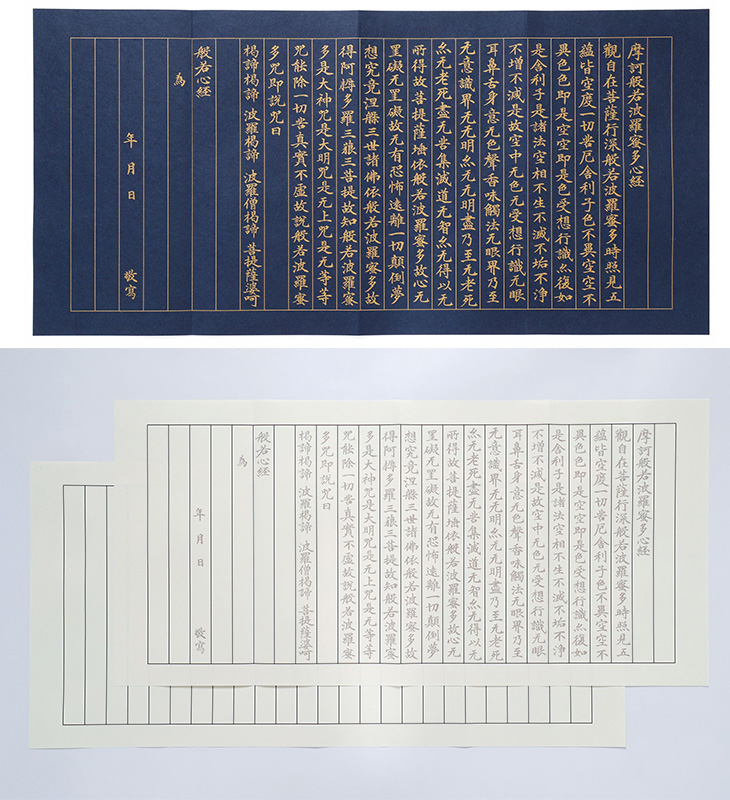 摩訶般若波羅蜜多心經
觀自在菩薩行深般若波羅蜜多時照見五
蘊皆空度一切苦厄舍利子色不異空空不
異色色即是空空即是色受想行識亦復如
是舍利子是諸法空相不生不滅不垢不淨
不增不減是故空中无色无受想行識无眼
耳鼻舌身意无色聲香味觸法无眼界乃至
无意識界无无明亦无无明盡乃至无老死
亦无老死盡无苦集滅道无智亦无得以无
所得故菩提薩埵依般若波羅蜜多故心无
罣礙无罣礙故无有恐怖遠離一切顛倒夢
想究竟涅槃三世諸佛依般若波羅蜜多故
得阿耨多羅三藐三菩提故知般若波羅蜜
多是大神咒是大明咒是无上咒是无等等
咒能除一切苦真實不虛故說般若波羅蜜
多咒即說咒曰
揭諦揭諦 波羅揭諦 波羅僧揭諦 菩提薩婆訶
般若心經
為
年 月 日 敬寫
摩訶般若波羅蜜多心經
觀自在菩薩行深般若波羅蜜多時照見五
蘊皆空度一切苦厄舍利子色不異空空不
異色色即是空空即是色受想行識亦復如
是舍利子是諸法空相不生不滅不垢不淨
不增不減是故空中无色无受想行識无眼
耳鼻舌身意无色聲香味觸法无眼界乃至
无意識界无无明亦无无明盡乃至无老死
亦无老死盡无苦集滅道无智亦无得以无
所得故菩提薩埵依般若波羅蜜多故心无
罣礙无罣礙故无有恐怖遠離一切顛倒夢
想究竟涅槃三世諸佛依般若波羅蜜多故
得阿耨多羅三藐三菩提故知般若波羅蜜
多是大神咒是大明咒是无上咒是无等等
咒能除一切苦真實不虛故說般若波羅蜜
多咒即說咒曰
揭諦揭諦 波羅揭諦 波羅僧揭諦 菩提薩婆訶
般若心經
為
年 月 日 敬寫